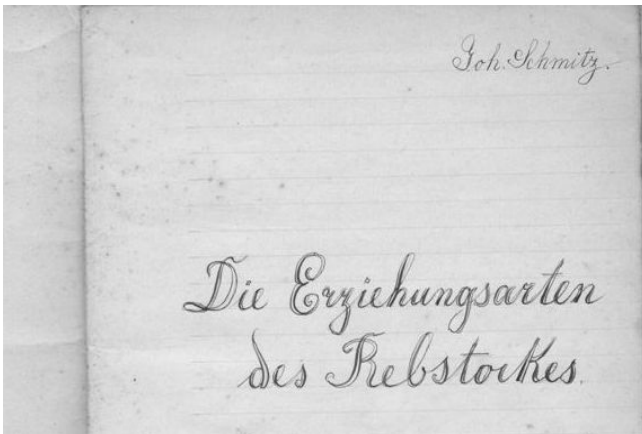 Joh. Schmitz.
Die Erziehungsarten
des Rebstockes.